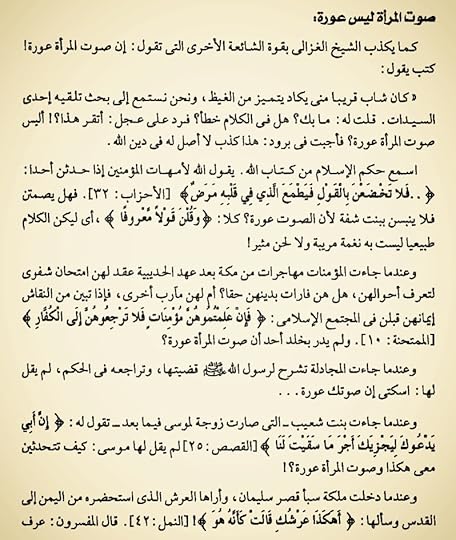 صوت المرأة ليس عورة:
كما يكذب الشيخ الغزالى بقوة الشائعة الأخرى التى تقول: إن صوت المرأة عورة!
كتب يقول:
« كان شاب قريبا منى يكاد يتميز من الغيظ، ونحن نستمع إلى بحث تلقيه إحدى
السيدات. قلت له: ما بك؟ هل فى الكلام خطأ؟ فرد على عجل: أتقر هذا؟! أليس
صوت المرأة عورة؟ فأجبت فى برود: هذا كذب لا أصل له فى دين الله.
اسمع حكم الإسلام من كتاب الله. يقول الله لأمهات المؤمنين إذا حدثن أحدا:
﴿ ..فَلا تَخْضَعْنَ بِالْقَوْلِ فَيَطْمَعَ الَّذِي فِي قَلْبِهِ مَرَضٌ ﴾ [الأحزاب: ٣٢]. فهل يصمتن
فلا ينبسن ببنت شفة لأن الصوت عورة؟ كلا: ﴿ وَقُلْنَ قَوْلاً مَّعْرُوفًا ﴾، أى ليكن الكلام
طبيعيا ليست به نغمة مريبة ولا لحن مثير!
وعندما جاءت المؤمنات مهاجرات من مكة بعد عهد الحديبية عقد لهن امتحان شفرى
لتعرف أحوالهن، هل هن فارات بدينهن حقا؟ أم لهن مآرب أخرى، فإذا تبين من النقاش
إيمانهن قبلن فى المجتمع الإسلامى: ﴿ فَإِنْ عَلِمْتُمُوهُنَّ مُؤْمِنَاتٍ فَلا تَرْجِعُوهُنَّ إِلَى الْكُفَّارِ ﴾
[الممتحنة: ١٠]. ولم يدر بخلد أحد أن صوت المرأة عورة؟
وعندما جاءت المجادلة تشرح لرسول الله ﷺ قضيتها، وتراجعه فى الحكم، لم يقل
لها: اسكتى إن صوتك عورة...
وعندما جاءت بنت شعيب ــ التى صارت زوجة لموسى فيما بعد ــ تقول له: ﴿ إِنَّ أَبِي
يَدْعُوكَ لِيَجْزِيَكَ أَجْرَ مَا سَقَيْتَ لَنَا ﴾ [القصص: ٢٥] لم يقل لها موسى: كيف تتحدثين
معى هكذا وصوت المرأة عورة؟!
وعندما دخلت ملكة سبأ قصر سليمان، وأراها العرش الذى استحضره من اليمن إلى
القدس وسألها: ﴿ أَهَكَذَا عَرْشُكِ قَالَتْ كَأَنَّهُ هُوَ ﴾! [النمل: ٤٢]. قال المفسرون: عرف